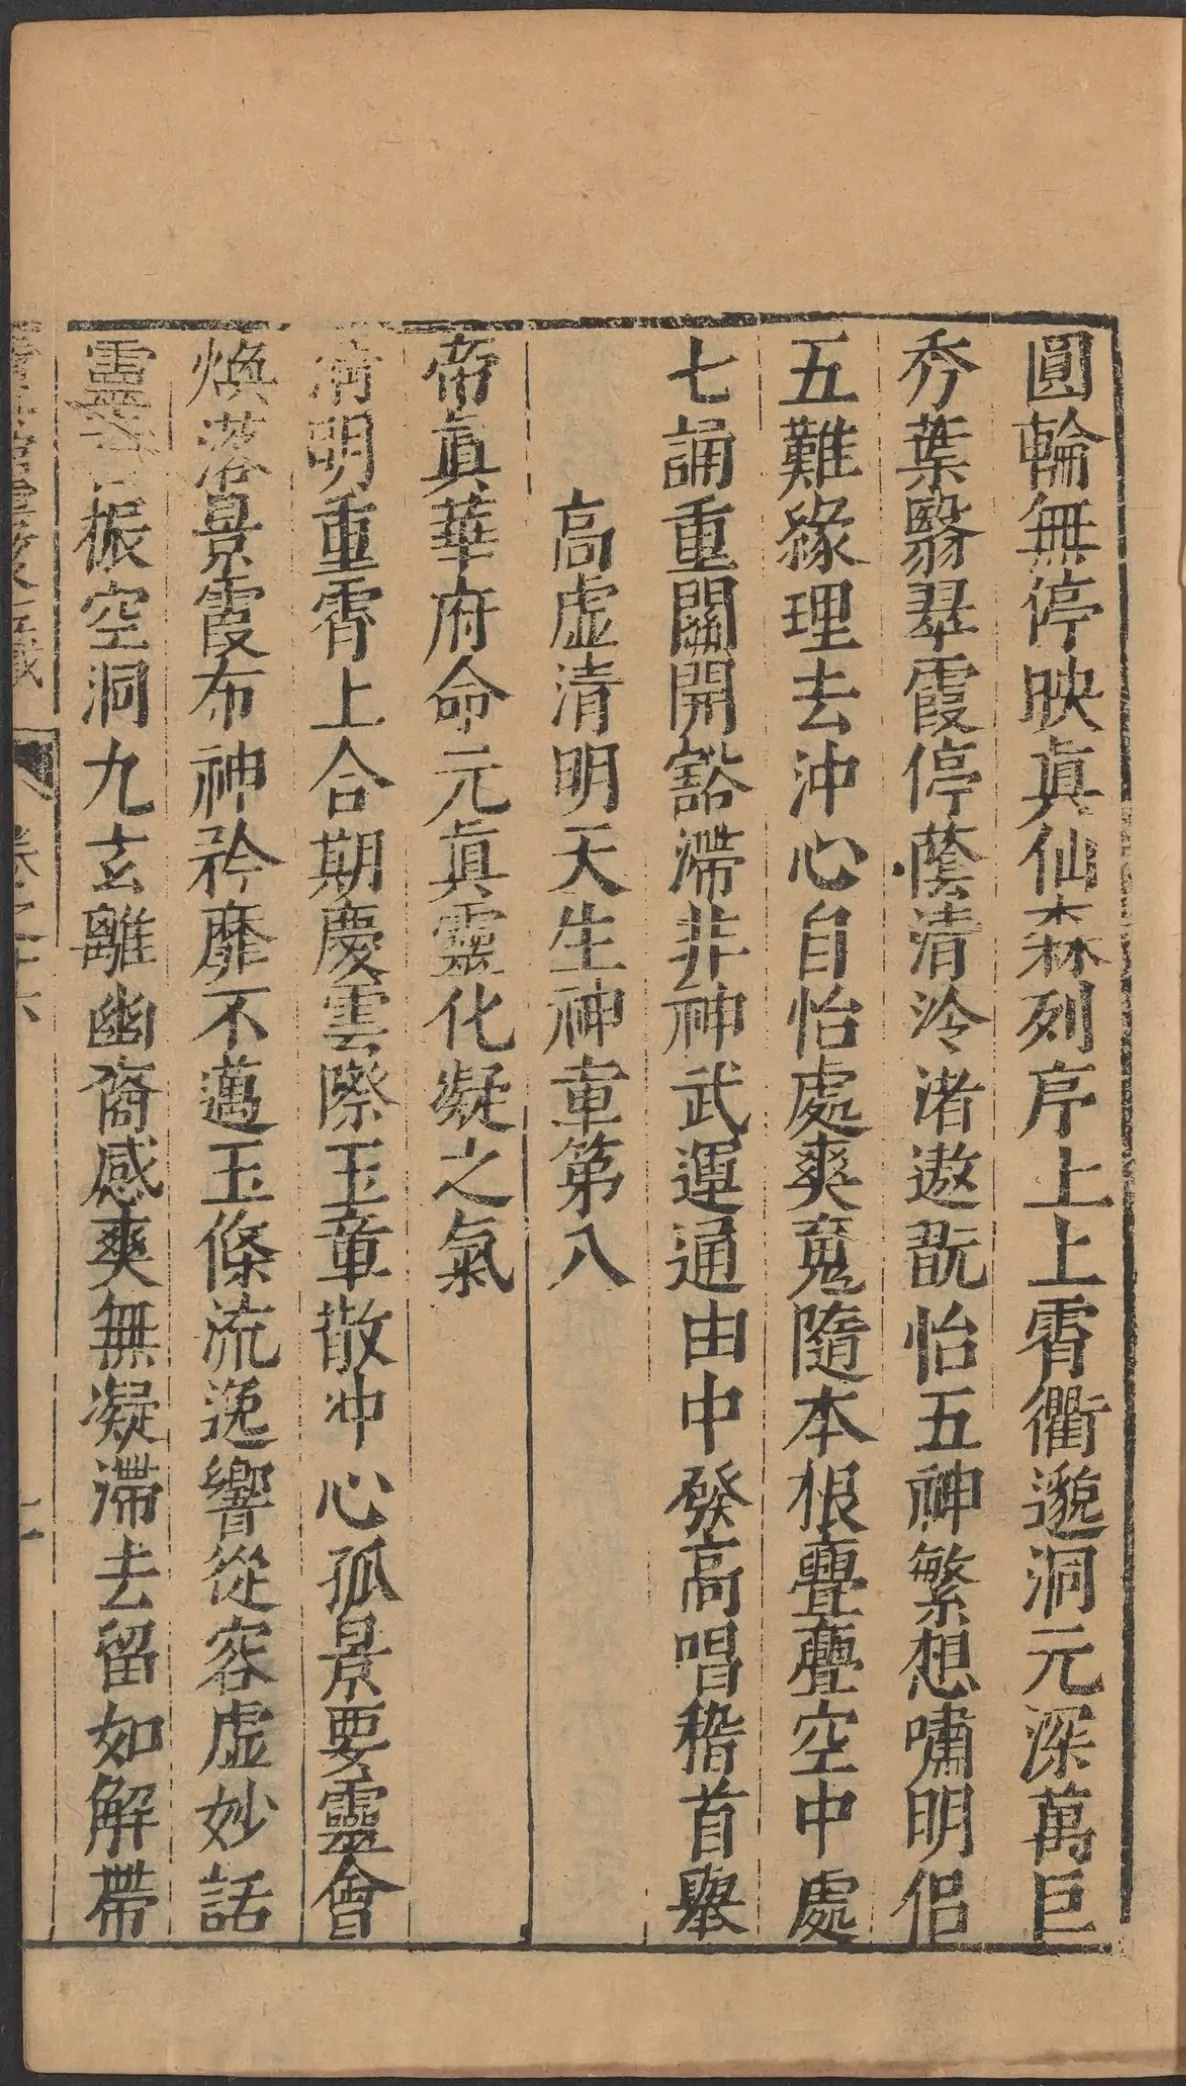 圓輪無停映眞仙森列序上上霄衢邈洞元深萬巨
秀葉翳翠霞停蔭清泠渚遨翫怡五神繁想嘯明侶
五難緣理去沖心自怡處爽䰟隨本根亹亹空中處
七誦重關開豁滯非神武運通由中發高唱稽首舉
高虛清明天生神章第八
帝眞華府命元眞靈化凝之氣
清明重霄上合期慶雲際玉章散冲心孤景要靈會
煥落景霞布神衿靡不邁玉條流逸響從容虛妙話
靈音振空洞九玄離幽裔感爽無凝滯去留如解帶
卷之十六